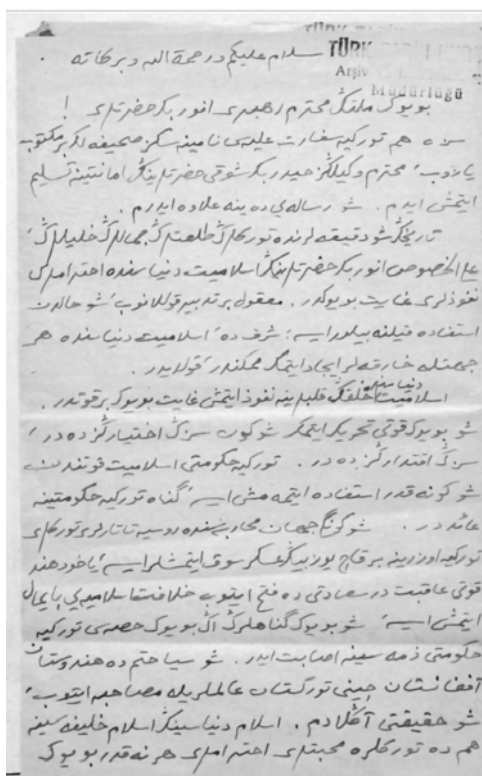 TÜRK
Arşiv
Müdürlüğü
سلام عليكم ورحمة الله وبركاته .
بويوك ملتڭ محترم رهبرى انور بك حضرتلرى !
سزه هم توركيه سفارت عليه سى نامينه سكز صحيفه لك بر مكتوب
يازوب، محترم وكيلڭز حيدر بك شوقى حضرتلرينڭ امانتينه تسليم
ايتمش ايدم . شو رساله يى ده ينه علاوه ايدرم .
تاريخڭ شو دقيقه لرنده توركلرڭ طلعتلرڭ جماللرڭ خليللرڭ،
على الخصوص انور بك حضرتلرينڭ اسلاميت دنياسنده احتراملرى
نفوذلرى غايت بويوكدر . معقول بر تدبير قوللانوب، شو حالدن
استفاده قيلنه بيلور ايسه، شرقده، اسلاميت دنياسنده هر
جهتله خارقه لر ايجاد ايتمك ممكندر، قولايدر .
اسلاميت دنياسنده خلقڭ قلبلرينه نفوذ ايتمش غايت بويوك بر قوتدر .
شو بويوك قوتى تحريك ايتمك شو كون سزڭ اختيارڭزده در،
سزڭ اقتدارڭزده در . توركيه حكومتى اسلاميت قوتندن
شو كونه قدر استفاده ايتمه مش ايسه، گناه توركيه حكومتينه
عائددر . شو كونگى جهان محاربه سنده روسيه تاتارلرى توركلرى
توركيه اوزرينه بر قاچ يوز بيڭ عسكر سوق ايتمشلر ايسه، ياخود هند
قوتى عاقبت در سعادتى ده فتح ايتوب خلافت اسلاميه يى پايمال
ايتمش ايسه، شو بويوك گناهلرڭ اڭ بويوك حصه سى توركيه
حكومتى ذمه سينه اصابت ايدر . شو سياحتمده هندوستان
آفغانستان چينى توركستان عالملريله مصاحبه ايتوب،
شو حقيقتى آڭلادم . اسلام دنياسينڭ اسلام خليفه سينه
هم ده توركلره محبتلرى احتراملرى هر نه قدر بويوك